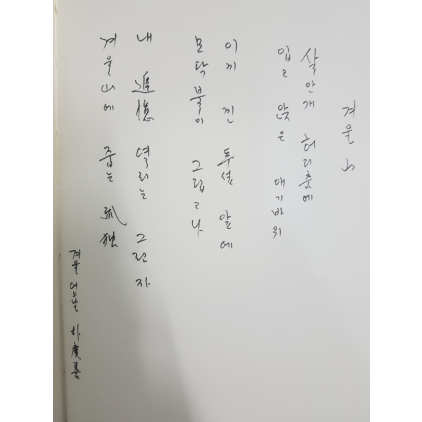 겨울 山
살안개 허리춤에
입고 앉은 애기바위
이끼 낀 앞에
모닥불이 그립고나
내 追憶 열리는 그림자
겨울山에 줍는 孤獨
겨울 어느날 朴慶善